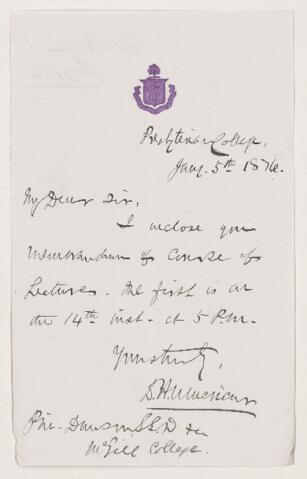 Presbyterian College,
Jany. 5th 1876.
My Dear Sir,
I inclose you
Memorandum of Course of
Lectures. The first is on
the 14th inst. at 5 P.M.
Yours truly,
Prin. Dawson LL.D
McGill College.